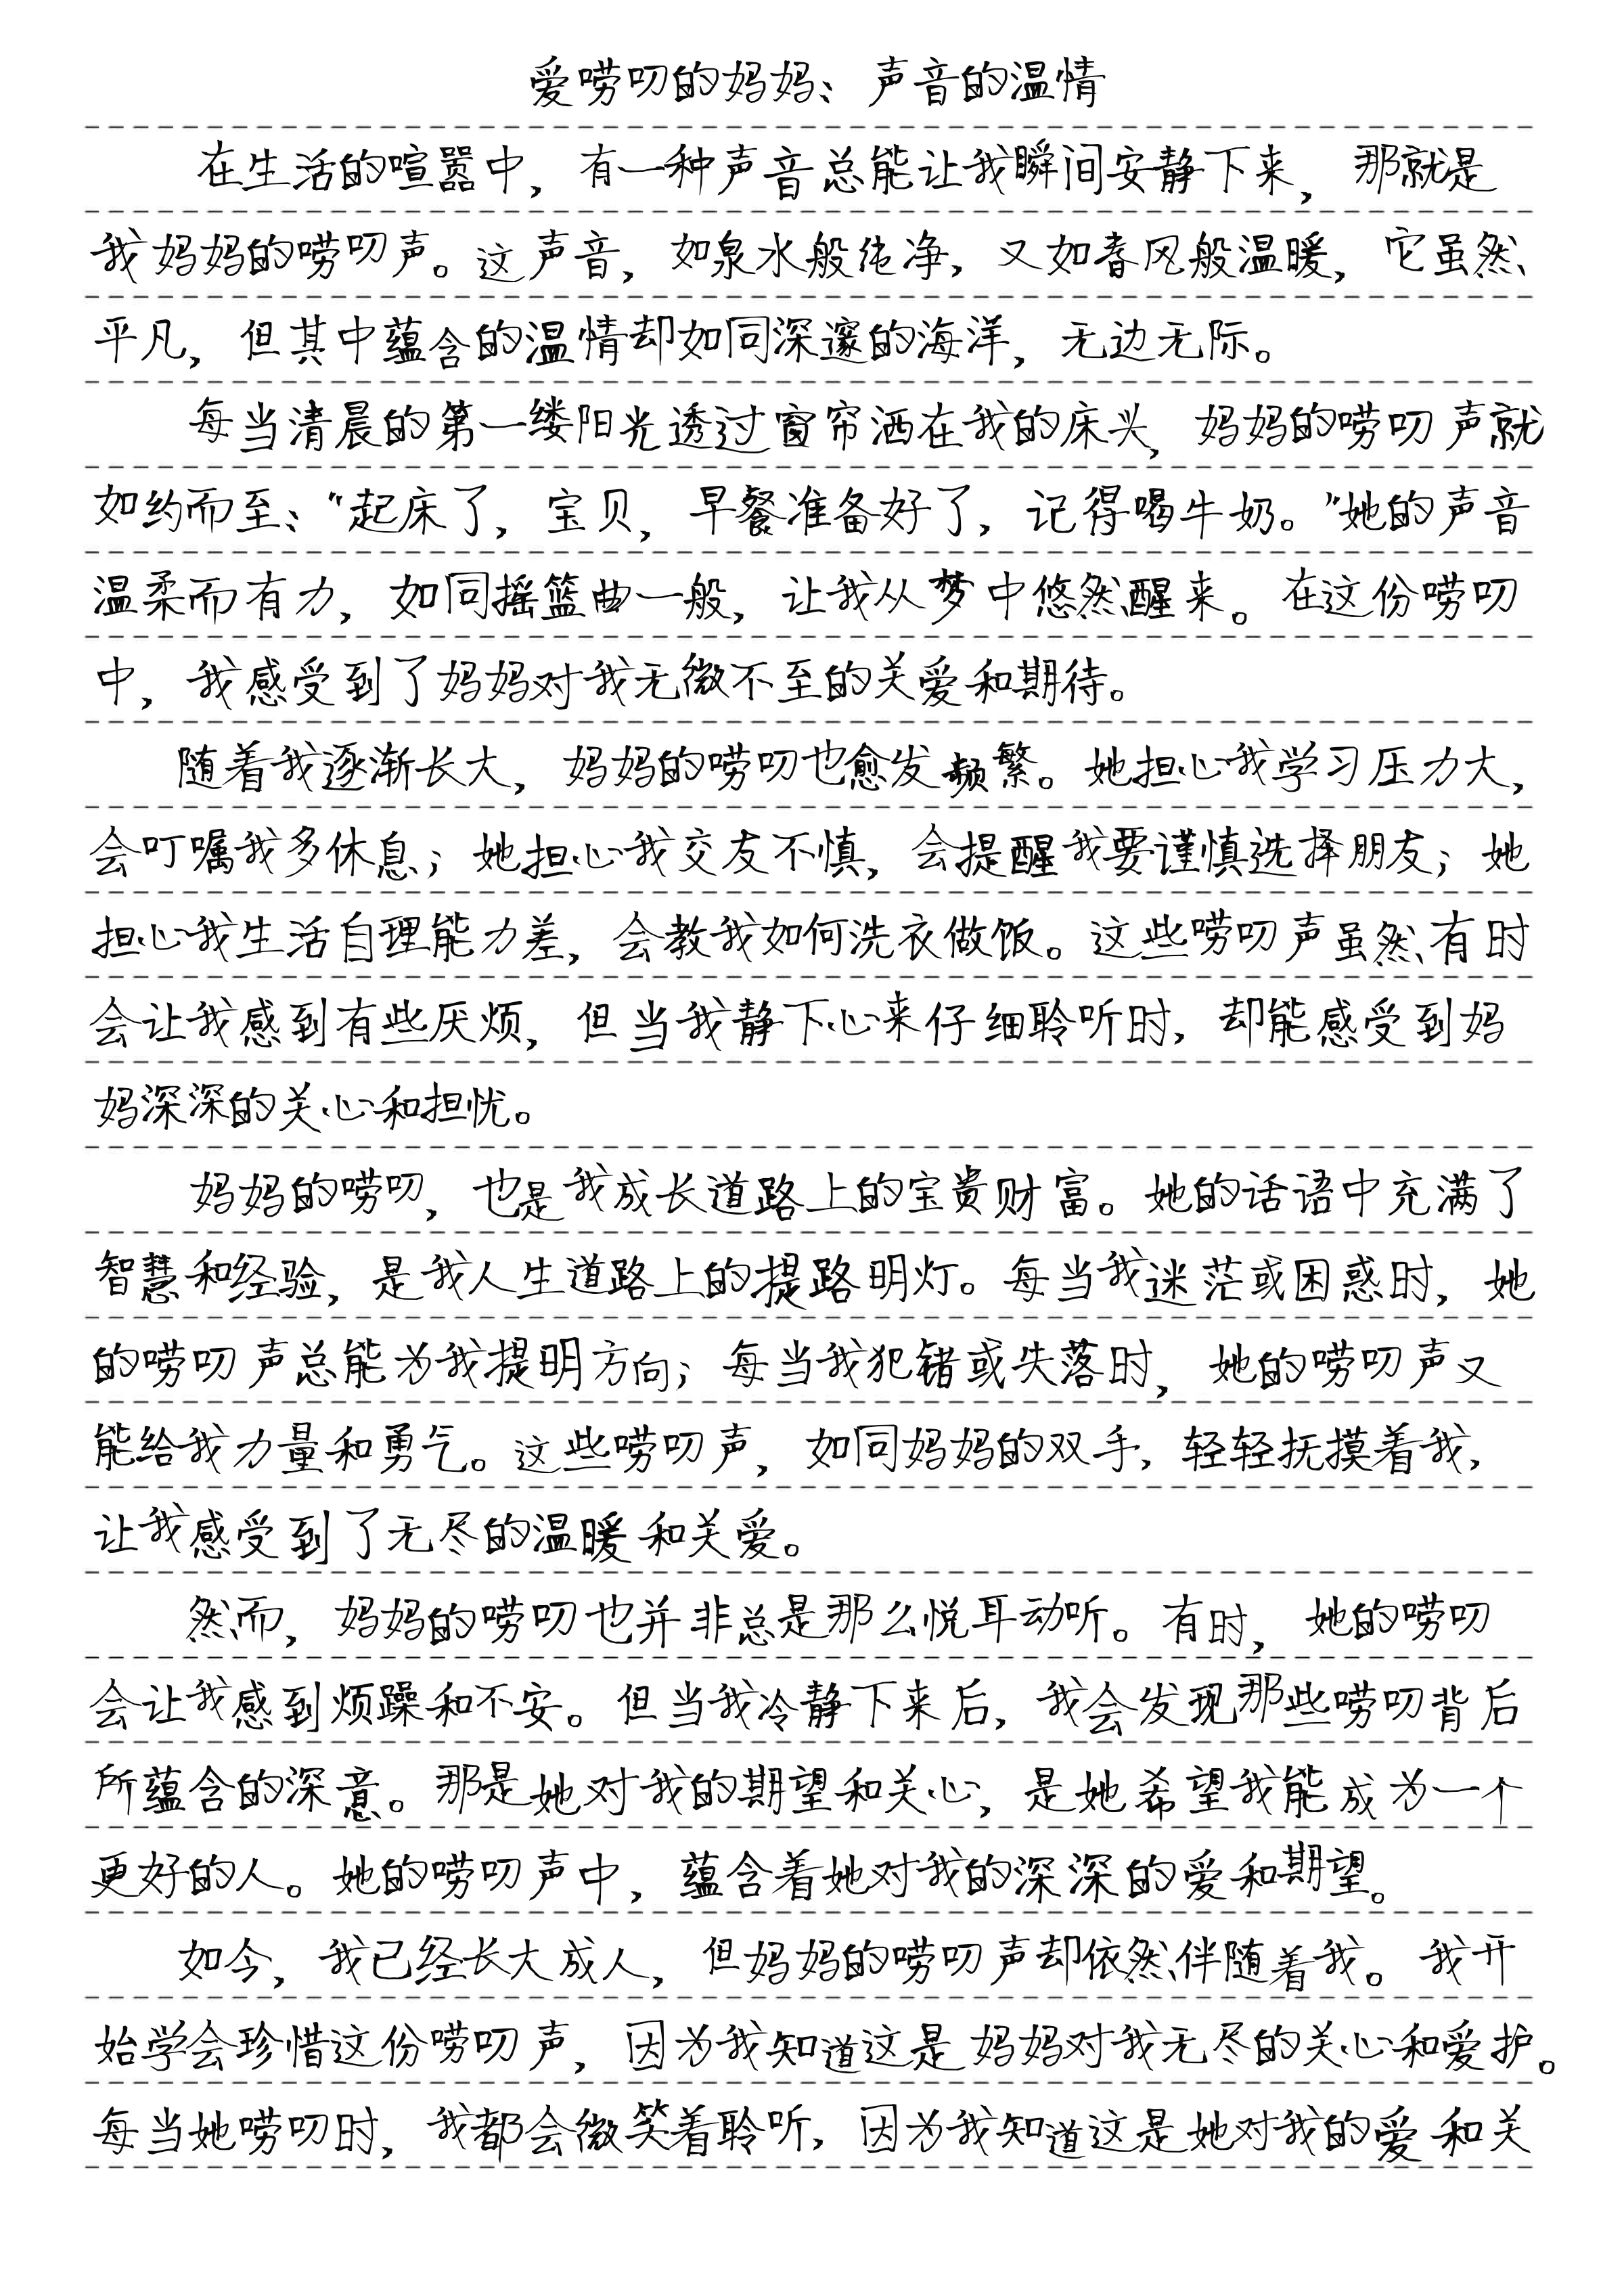 爱唠叨的妈妈、声音的温情
在生活的喧嚣中，有一种声音总能让我瞬间安静下来，那就是
我妈妈的唠叨声。这声音，如泉水般纯净，又如春风般温暖，它虽然
平凡，但其中蕴含的温情却如同深邃的海洋，无边无际。
每当清晨的第一缕阳光透过窗帘洒在我的床头，妈妈的唠叨声就
如约而至、“起床了，宝贝，早餐准备好了，记得喝牛奶。”她的声音
温柔而有力，如同摇篮曲一般，让我从梦中悠然醒来。在这份唠叨
中，我感受到了妈妈对我无微不至的关爱和期待。
随着我逐渐长大，妈妈的唠叨也愈发频繁。她担心我学习压力大，
会叮嘱我多休息；她担心我交友不慎，会提醒我要谨慎选择朋友；她
担心我生活自理能力差，会教我如何洗衣做饭。这些唠叨声虽然有时
会让我感到有些厌烦，但当我静下心来仔细聆听时，却能感受到妈
妈深深的关心和担忧。
妈妈的唠叨，也是我成长道路上的宝贵财富。她的话语中充满了
智慧和经验，是我人生道路上的提路明灯。每当我迷茫或困惑时，她
的唠叨声总能为我提明方向；每当我犯错或失落时，她的唠叨声又
能给我力量和勇气。这些唠叨声，如同妈妈的双手，轻轻抚摸着我，
让我感受到了无尽的温暖和关爱。
然而，妈妈的唠叨也并非总是那么悦耳动听。有时，她的唠叨
会让我感到烦躁和不安。但当我冷静下来后，我会发现那些唠叨背后
所蕴含的深意。那是她对我的期望和关心，是她希望我能成为一个
更好的人。她的唠叨声中，蕴含着她对我的深深的爱和期望。
如今，我已经长大成人，但妈妈的唠叨声却依然伴随着我。我开
始学会珍惜这份唠叨声，因为我知道这是妈妈对我无尽的关心和爱护。
每当她唠叨时，我都会微笑着聆听，因为我知道这是她对我的爱和关